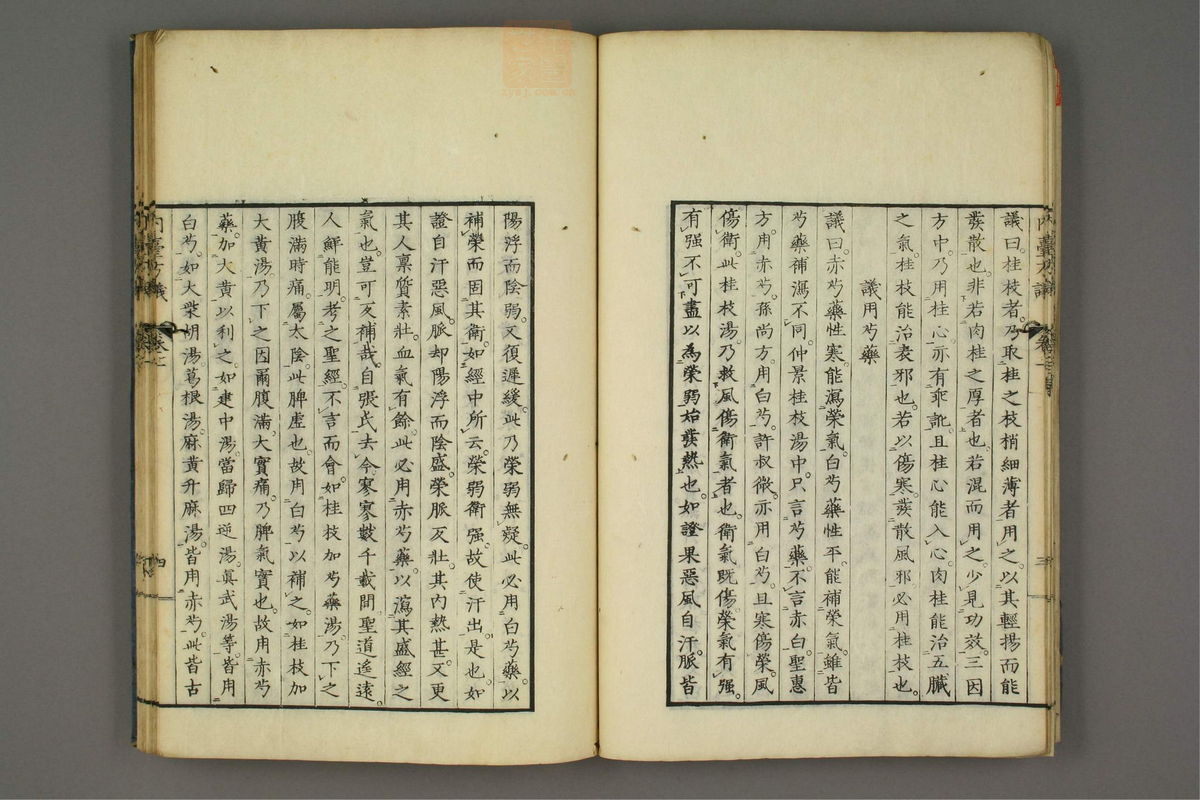 議曰桂枝者乃取桂之枝梢細薄者用之以其輕揚而能
發散也非若肉桂之厚者也若混而用之少見功效三因
方中乃用桂心亦有乖訛且桂心能入心肉桂能治五臟
之氣桂枝能治表邪也若以傷寒發散風邪必用桂枝也
議用芍藥
議曰赤芍藥性寒能瀉榮氣白芍藥性平能補榮氣雖皆
芍藥補瀉不同仲景桂枝湯中只言芍藥不言赤白聖惠
方用赤芍孫尚方用白芍許叔微亦用白芍且寒傷榮風
傷衛此桂枝湯乃救風傷衛氣者也衛氣既傷榮氣有强
有强不可盡以為榮弱始發熱也如證果惡風自汗脈皆
陽浮而陰弱又復遲緩此乃榮弱無疑此必用白芍藥以
補榮而固其衛如經中所云榮弱衛强故使汗出是也如
證自汗惡風脈却陽浮而陰盛榮脈反壯其內熱甚又更
其人稟質素壯血氣有餘此必用赤芍藥以瀉其盛經之
氣也豈可反補哉自張氏去今寥寥數千載間聖道遙遠
人鮮能明考之聖經不言而會如桂枝加芍藥湯乃下之
腹滿時痛屬太陰此脾虛也故用白芍以補之如桂枝加
大黄湯乃下之因爾腹滿大實痛乃脾氣實也故用赤芍
藥加大黄以利之如建中湯當歸四逆湯眞武湯等皆用
白芍如大柴胡湯葛根湯麻黄升麻湯皆用赤芍此皆古
內臺方議
卷之一
四